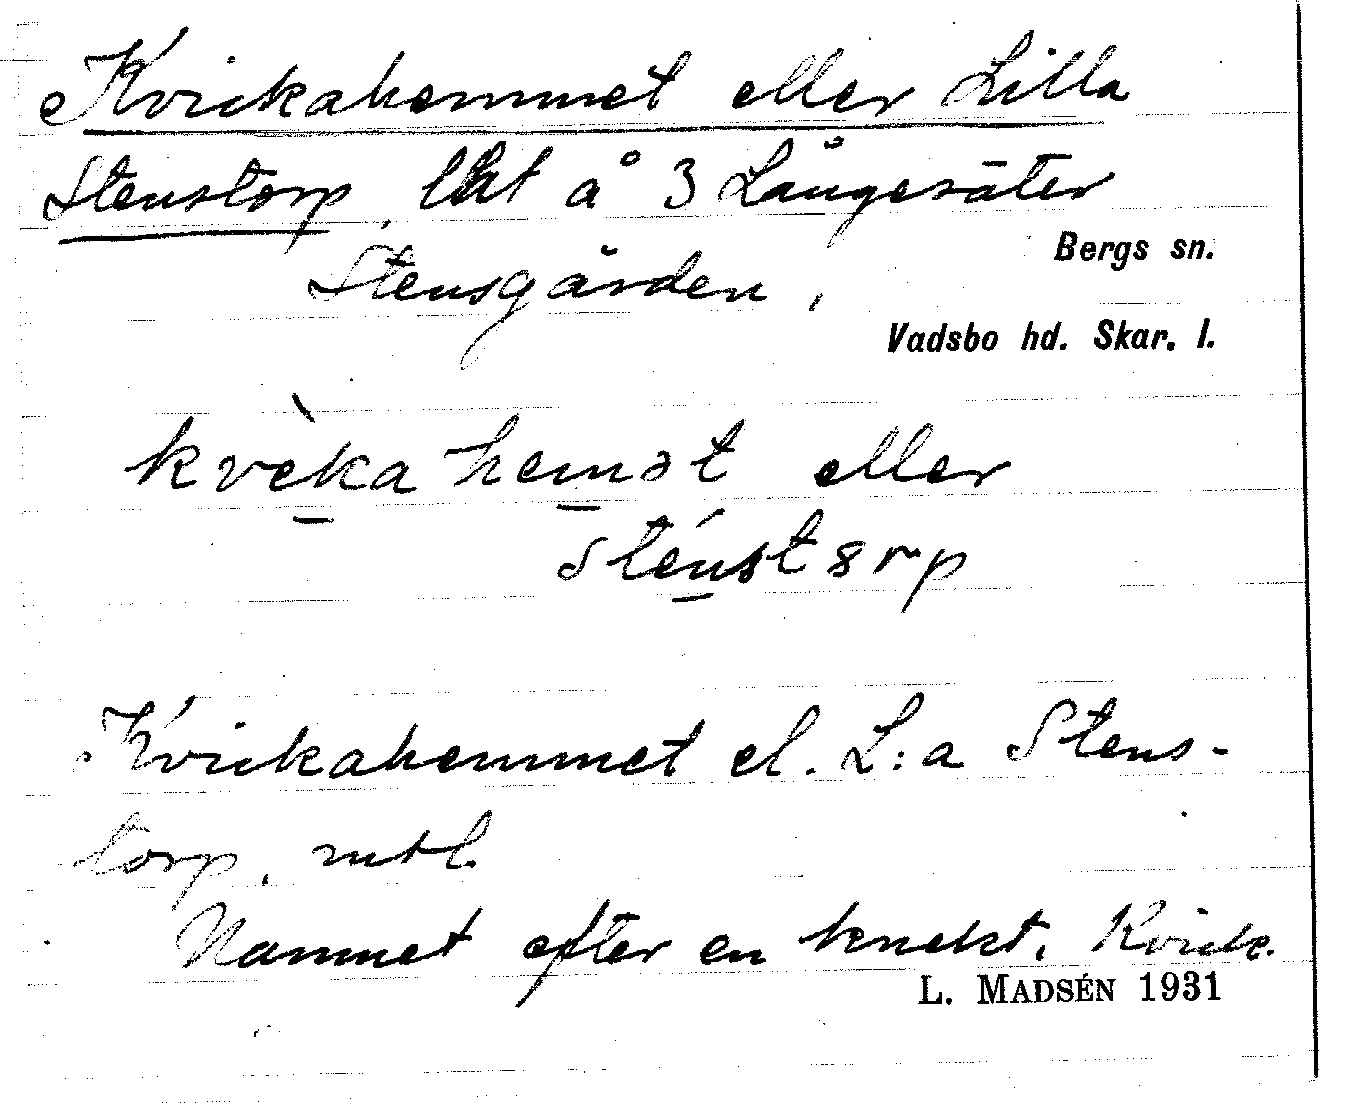 Kvickahemmet eller Lilla
Stenstorp, lht å 3 Långesäter
Bergs sn.
Stensgården,
Vadsbo hd. Skar. l.
kvèka hemət eller
sténstȣrp
Kvickahemmet el. L:a Stens-
torp, mtl.
Namnet efter en knekt, Kvick.
L. MADSÉN 1931